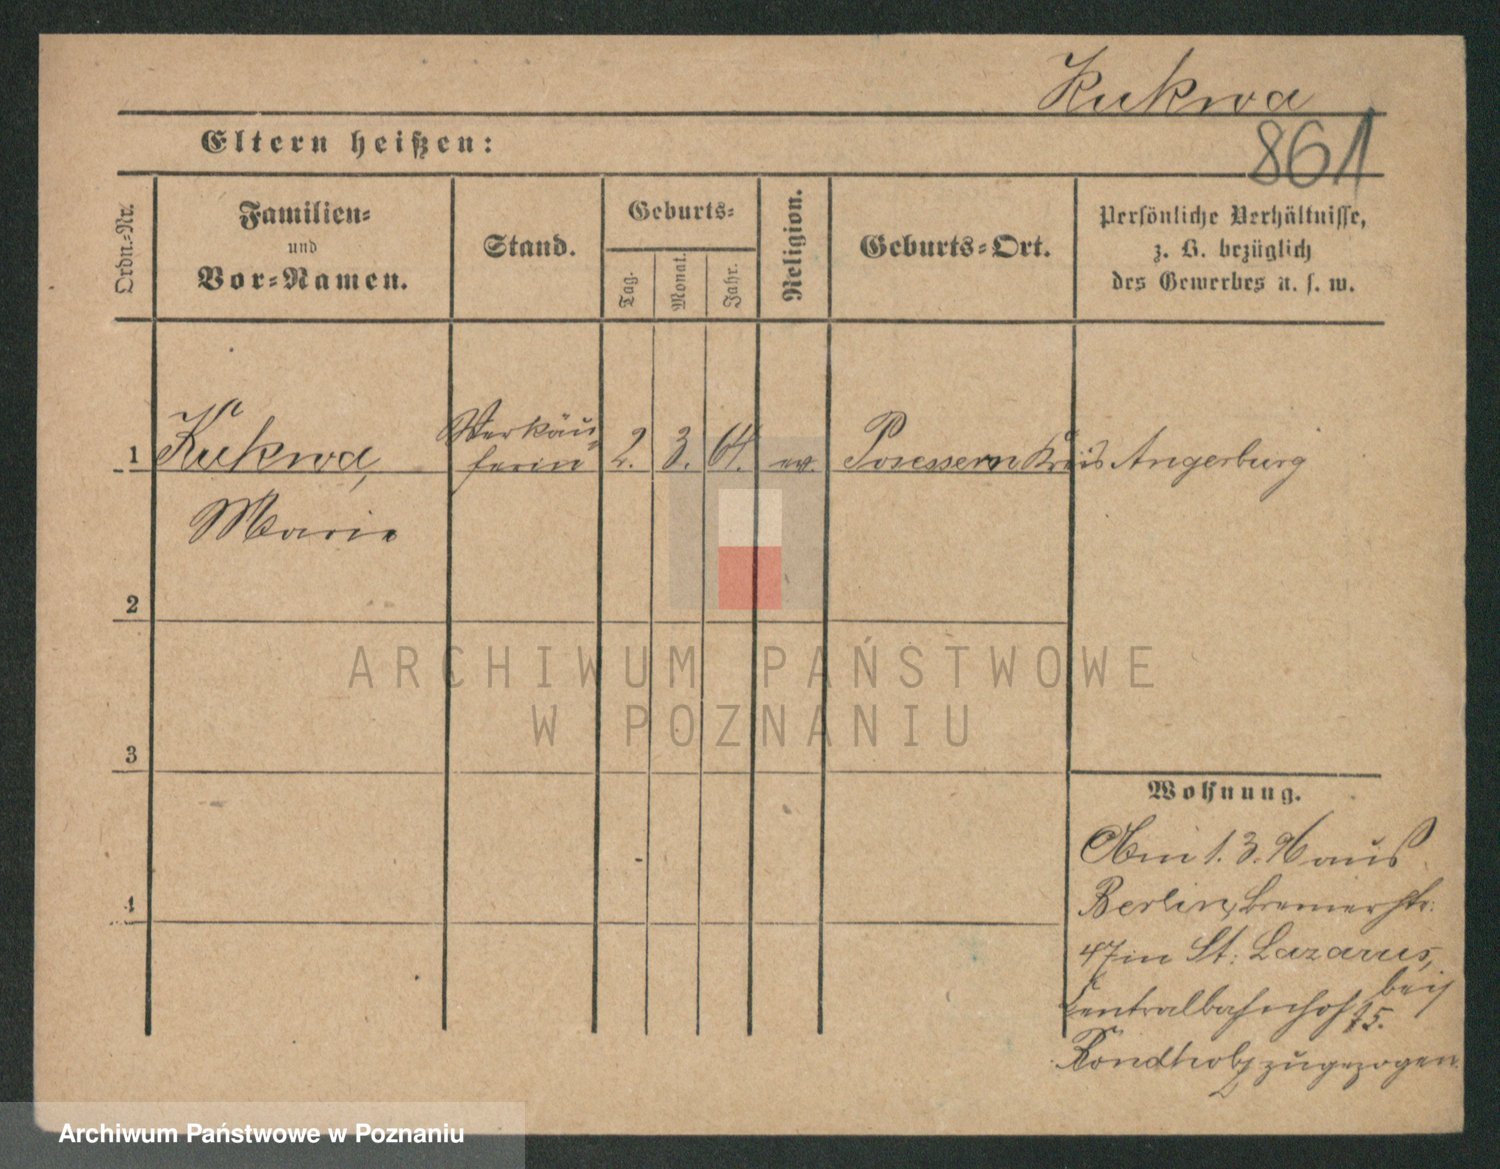 Kukwa
861
Eltern heißen:
Ordn.-Nr.
Familien-
und
Vor-Namen.
Stand.
Geburts-
Tag.
Monat.
Jahr.
Religion.
Geburts-Ort.
Persönliche Verhältnisse,
z. B. bezüglich
des Gewerbes u. s. w.
1 Kukwa, Verkäu- 2. 3. 64. ev. Posessern Kreis Angerburg
ferin
Marie
2
3
4
Wohnung.
Am 1. 3. 96 aus
Berlin, Bremerstr.
47 in St: Lazarus,
Centralbahnhof 75. bei
zugezogen
ARCHIWUM PAŃSTWOWE
W POZNANIU
Archiwum Państwowe w Poznaniu